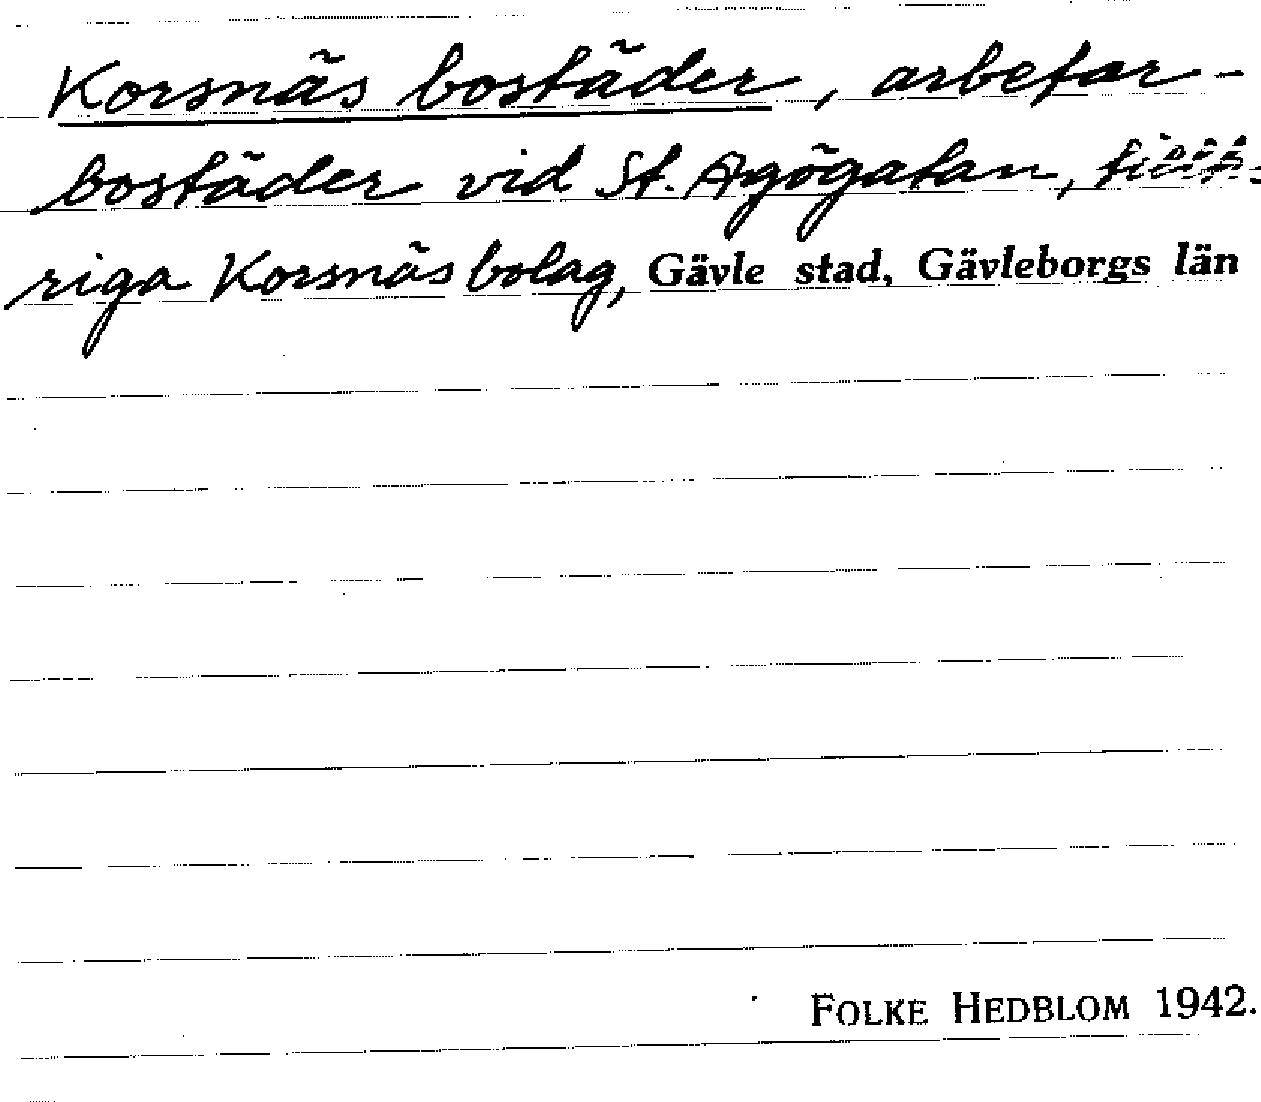 Korsnäs bostäder, arbetar-
bostäder vid St. Agögatan, tillhö-
riga Korsnäs bolag, Gävle stad, Gävleborgs län
FOLKE HEDBLOM 1942.